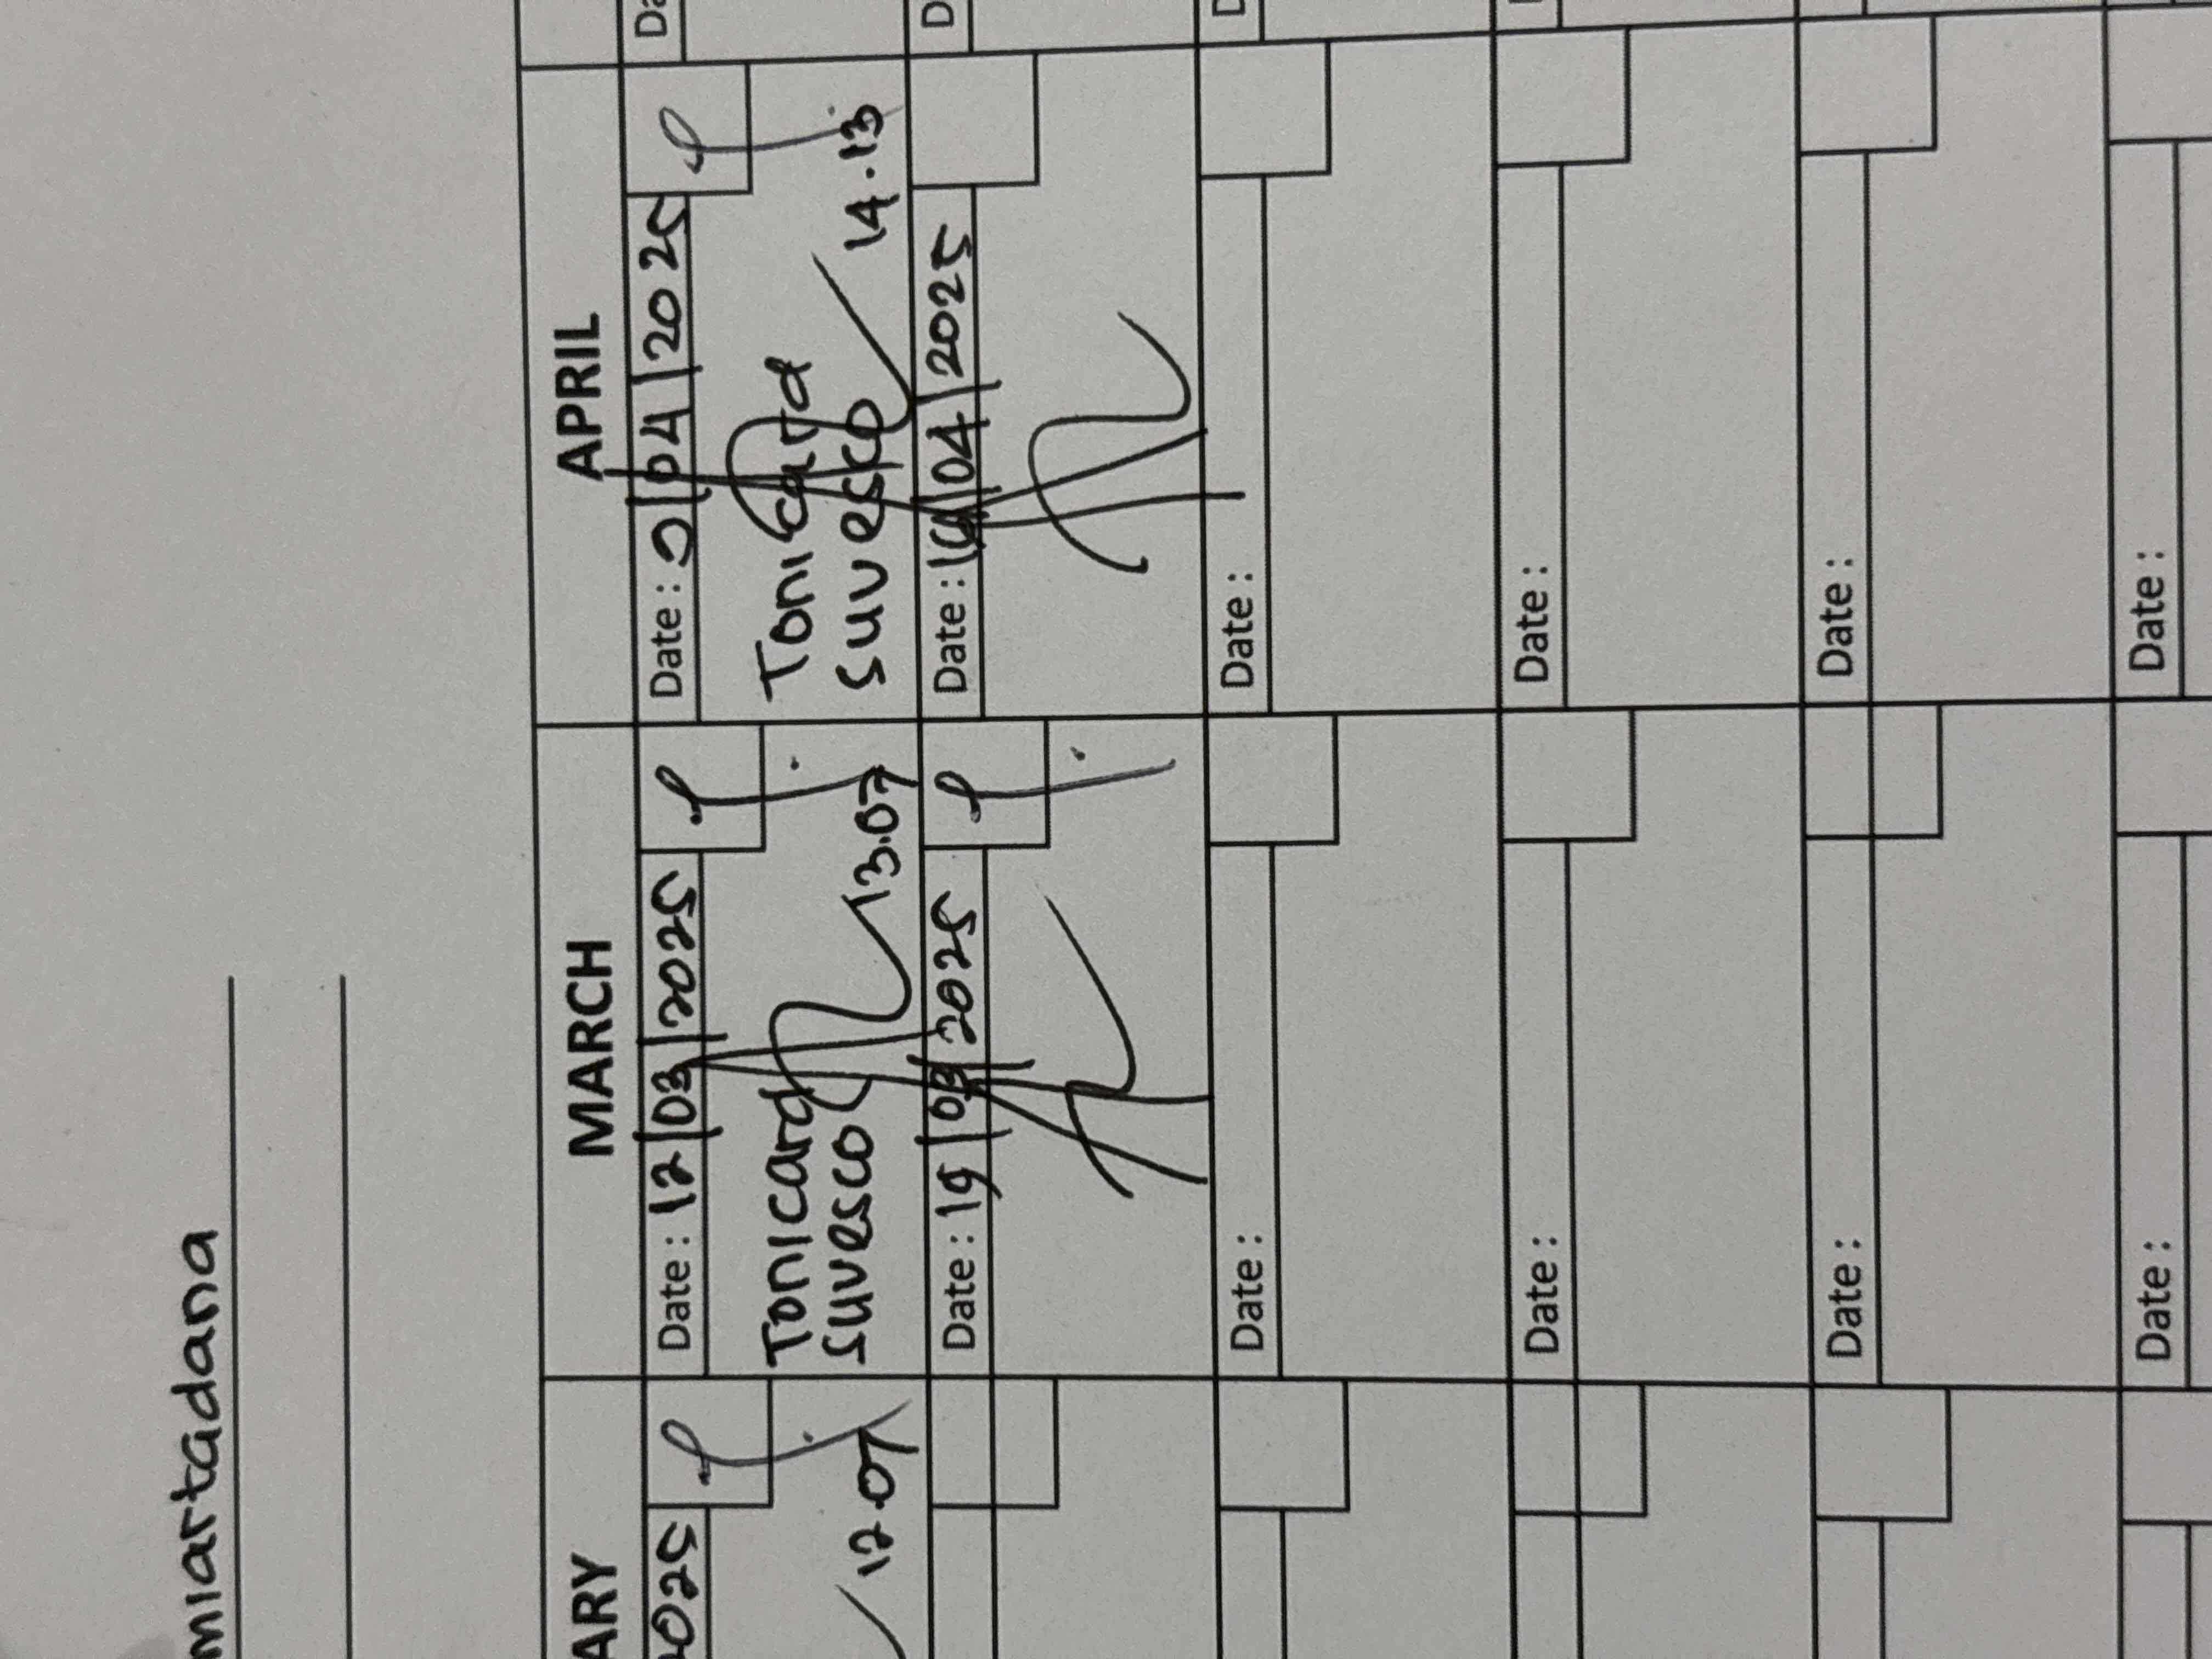 miartadana
ARY
MARCH
APRIL
2025
Date : 12/03/2025
Date : 04/2025
12.07
Tonicard
suvesco
13.07
Tonicard
suvesco
14.13
Date : 19/03/2025
Date : 04/2025
Date :
Date :
Date :
Date :
Date :
Date :
Date :
Date :